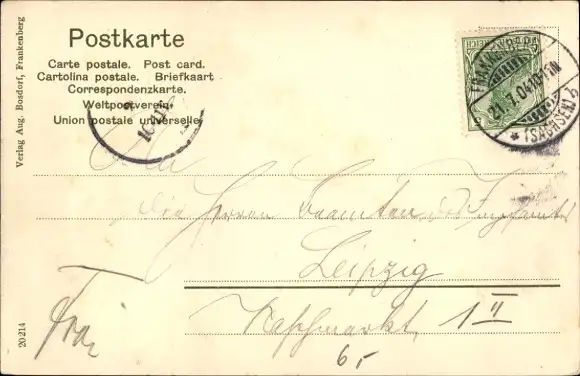 Postkarte
Carte postale. Post card.
Cartolina postale. Briefkaart
Correspondenzkarte.
Weltpostverein.
Union postale universelle.
Verlag Aug. Bosdorf, Frankenberg
20214
FRANKENBERG
21.7.04.10-11N
* (SACHSEN) b
An
die Herren Beamten des
Leipzig
Naschmarkt, 1 II
Frei
6,-